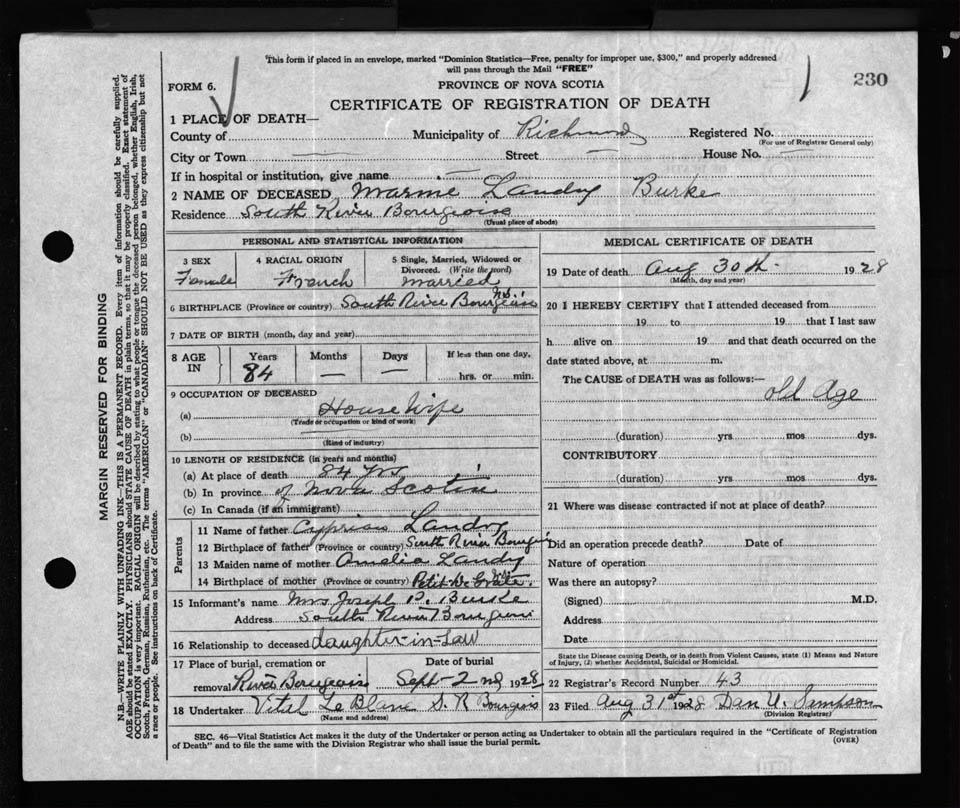 This form if placed in an envelope, marked "Dominion Statistics—Free, penalty for improper use, $300," and properly addressed
will pass through the Mail "FREE"
230
FORM 6.
PROVINCE OF NOVA SCOTIA
CERTIFICATE OF REGISTRATION OF DEATH
1 PLACE OF DEATH—
County of Municipality of Richmond Registered No.
(For use of Registrar General only)
City or Town — Street — House No. —
If in hospital or institution, give name —
2 NAME OF DECEASED Marmie Landry Burke
Residence South River Bourgeois
(Usual place of abode)
PERSONAL AND STATISTICAL INFORMATION
3 SEX 4 RACIAL ORIGIN 5 Single, Married, Widowed or
Divorced. (Write the word)
Female French Married
6 BIRTHPLACE (Province or country) South River Bourgeois N.S.
7 DATE OF BIRTH (month, day and year)
8 AGE IN Years Months Days If less than one day,
84 — — hrs. or min.
9 OCCUPATION OF DECEASED
(a) House Wife
(Trade or occupation or kind of work)
(b)
(Kind of industry)
10 LENGTH OF RESIDENCE (in years and months)
(a) At place of death 84 yrs
(b) In province of Nova Scotia
(c) In Canada (if an immigrant)
Parents
11 Name of father Cyprian Landry
12 Birthplace of father (Province or country) South River Bourgeois
13 Maiden name of mother Amelia Landry
14 Birthplace of mother (Province or country) Petit De Grate
15 Informant's name Mrs Joseph P. Burke
Address South River Bourgeois
16 Relationship to deceased daughter-in-Law
17 Place of burial, cremation or Date of burial
removal River Bourgeois Sept 2nd 1928
18 Undertaker Vital Le Blanc S. R Bourgeois
(Name and address)
MEDICAL CERTIFICATE OF DEATH
19 Date of death Aug 30th 1928
(Month, day and year)
20 I HEREBY CERTIFY that I attended deceased from
19 to 19 that I last saw
h alive on 19 and that death occurred on the
date stated above, at m.
The CAUSE OF DEATH was as follows:—
old Age
(duration) yrs mos dys.
CONTRIBUTORY
(duration) yrs mos dys.
21 Where was disease contracted if not at place of death?
Did an operation precede death? Date of
Nature of operation
Was there an autopsy?
(Signed) M.D.
Address
Date
State the Disease causing Death, or in death from Violent Causes, state (1) Means and Nature
of Injury, (2) whether Accidental, Suicidal or Homicidal.
22 Registrar's Record Number 43
23 Filed Aug 31st 1928 Dan U. Simpson
(Division Registrar)
SEC. 46—Vital Statistics Act makes it the duty of the Undertaker or person acting as Undertaker to obtain all the particulars required in the "Certificate of Registration
of Death" and to file the same with the Division Registrar who shall issue the burial permit.
(OVER)
MARGIN RESERVED FOR BINDING
N.B.—WRITE PLAINLY WITH UNFADING INK—THIS IS A PERMANENT RECORD. Every item of information should be carefully supplied.
AGE should be stated EXACTLY. PHYSICIANS should STATE CAUSE OF DEATH in plain terms, so that it may be properly classified. Exact statement of
OCCUPATION is very important. RACIAL ORIGIN will be described by stating to what people or tongue the deceased person belonged, whether English, Irish,
Scotch, French, German, Russian, Ruthenian, etc. The terms "AMERICAN" or "CANADIAN" SHOULD NOT BE USED as they express citizenship but not
a race or people. See instructions on back of Certificate.